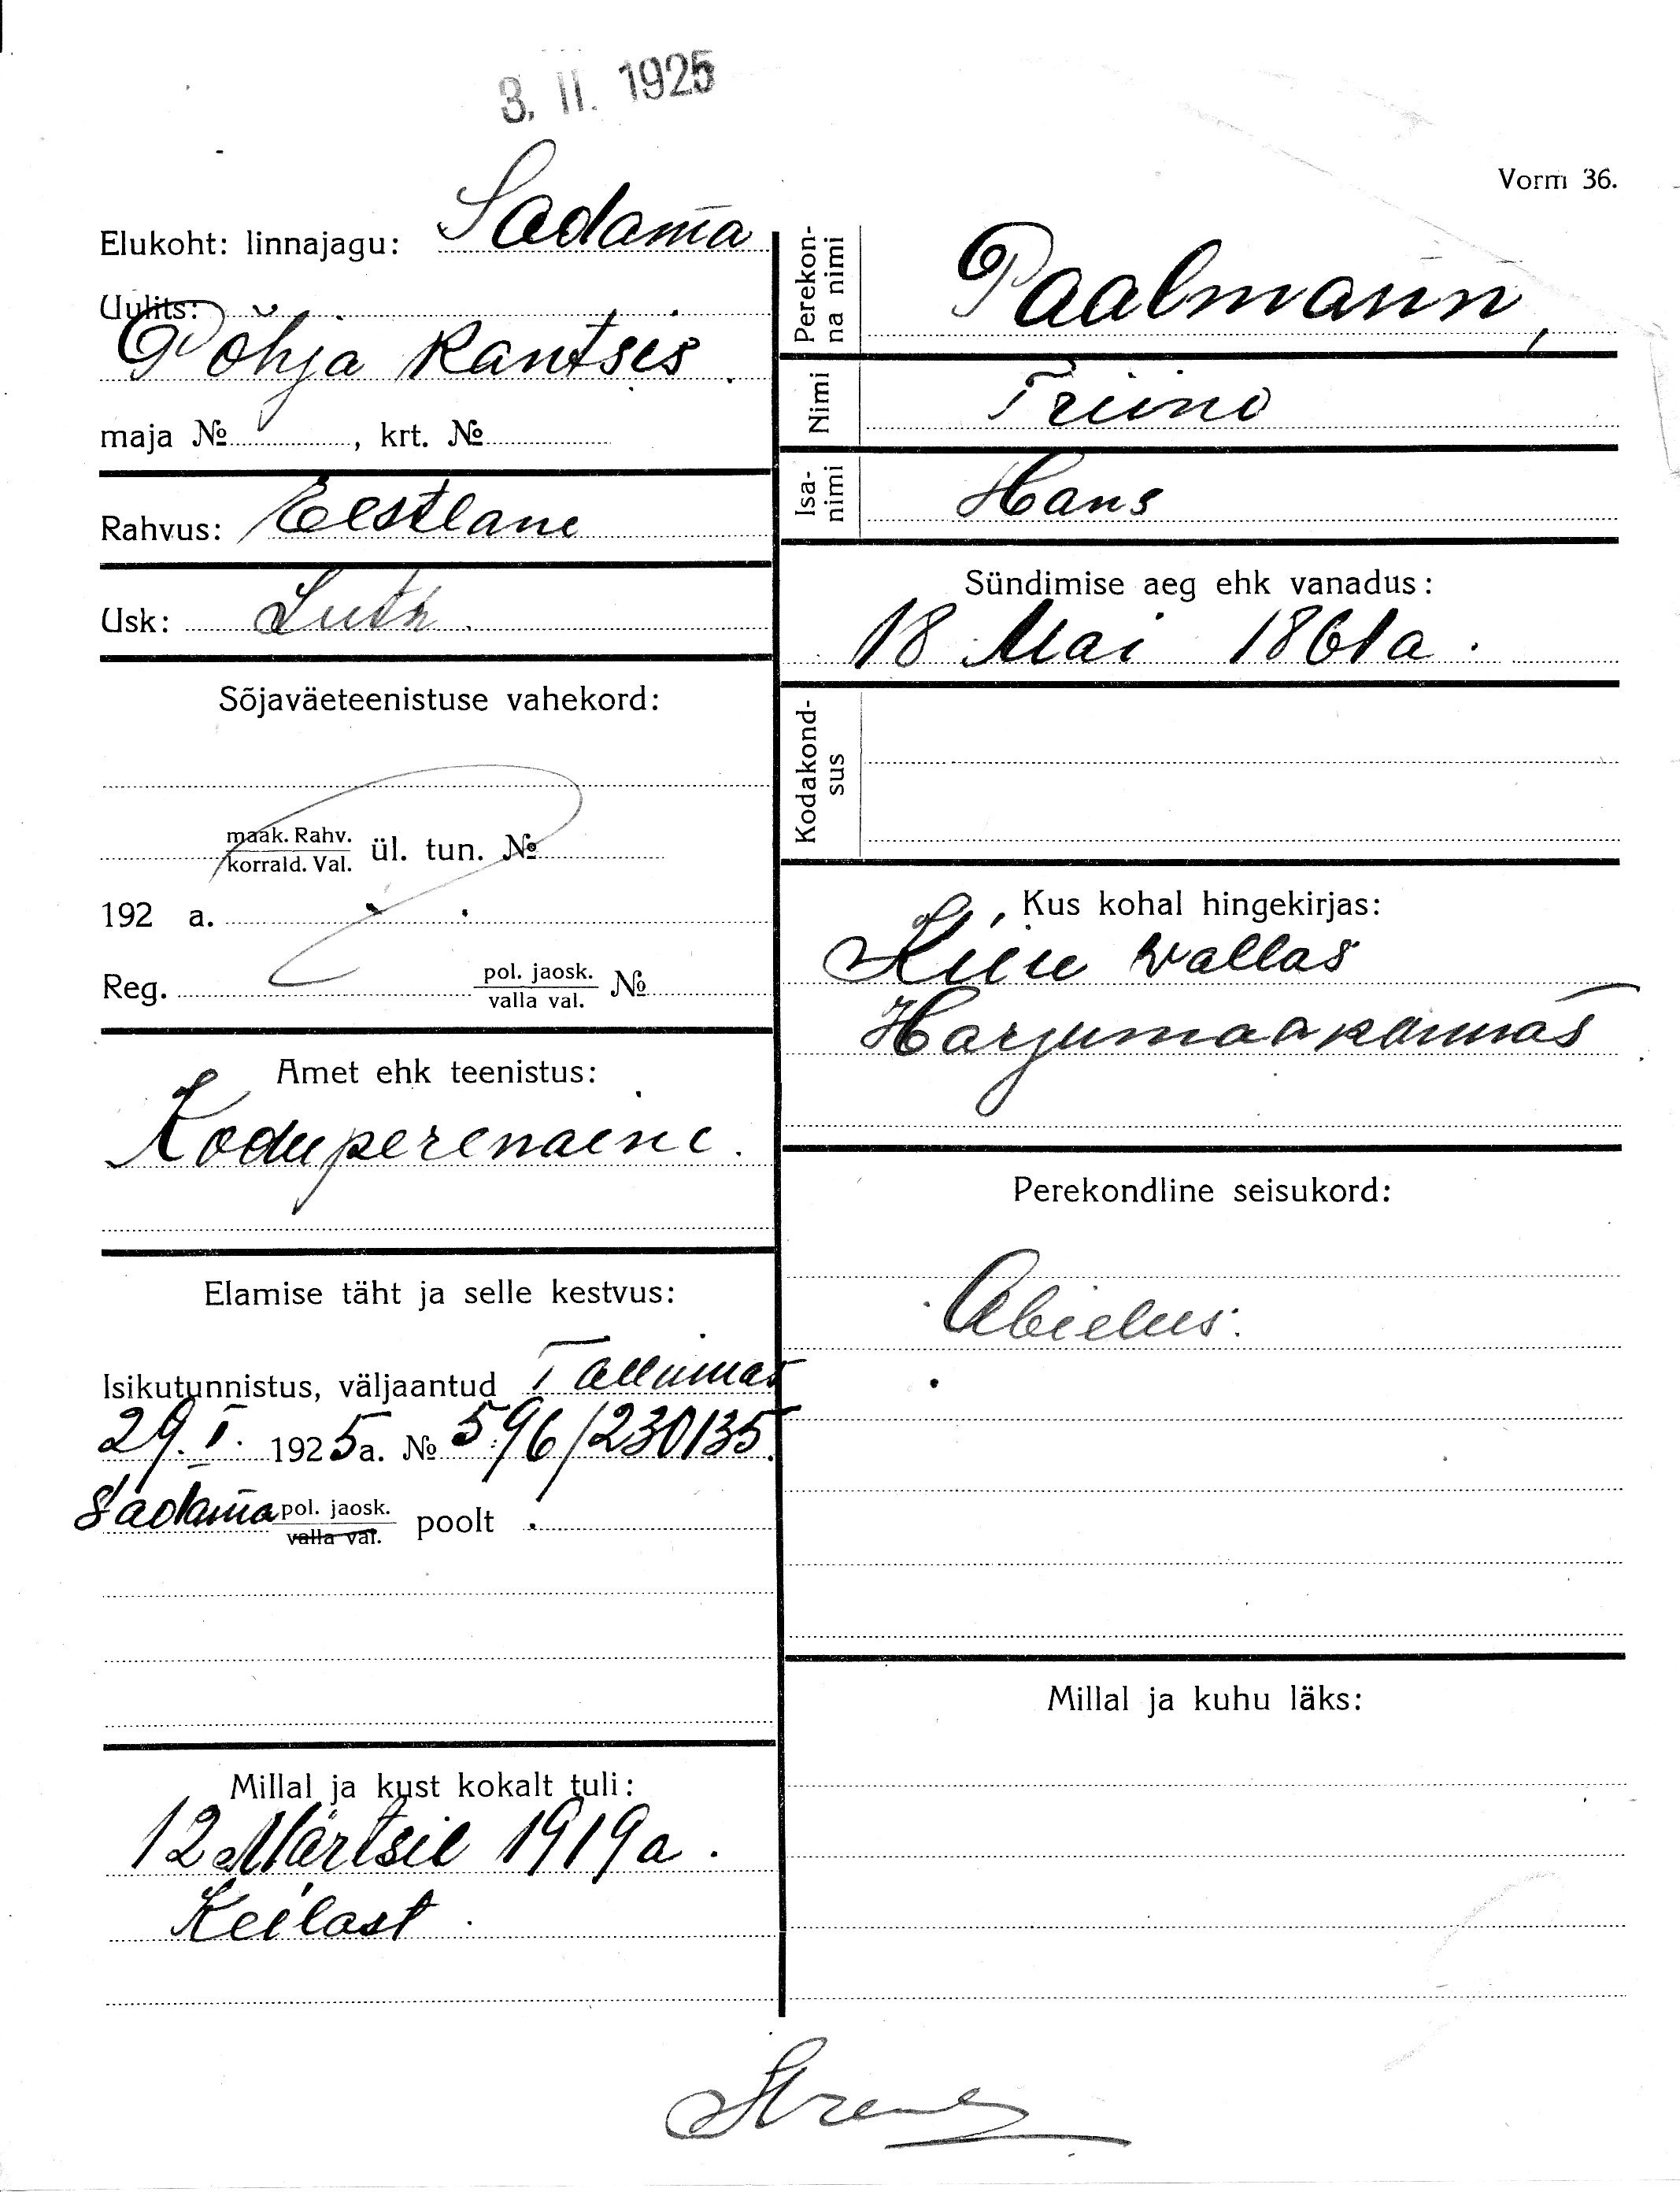 3. II. 1925
Vorm 36.
Elukoht: linnajagu: Sadama
Uulits:
Põhja kantsis.
maja № , krt. №
Rahvus: Eestlane
Usk: Luth.
Sõjaväeteenistuse vahekord:
maak. Rahv.
korrald. Val. ül. tun. №
192 a.
Reg. pol. jaosk. №
valla val.
Amet ehk teenistus:
Koduperenaine.
Elamise täht ja selle kestvus:
Isikutunnistus, väljaantud Tallinnas
29. I. 1925 a. № 596/230135.
Sadama pol. jaosk. poolt
valla val.
Millal ja kust kokalt tuli:
12 Märtsil 1919 a.
Keilast.
Perekon-
na nimi
Paalmann,
Nimi
Triino
Isa-
nimi
Hans
Sündimise aeg ehk vanadus:
18 Mai 1861 a.
Kodakond-
sus
Kus kohal hingekirjas:
Kiiu vallas
Harjumaakonnas
Perekondline seisukord:
Abielus.
Millal ja kuhu läks: